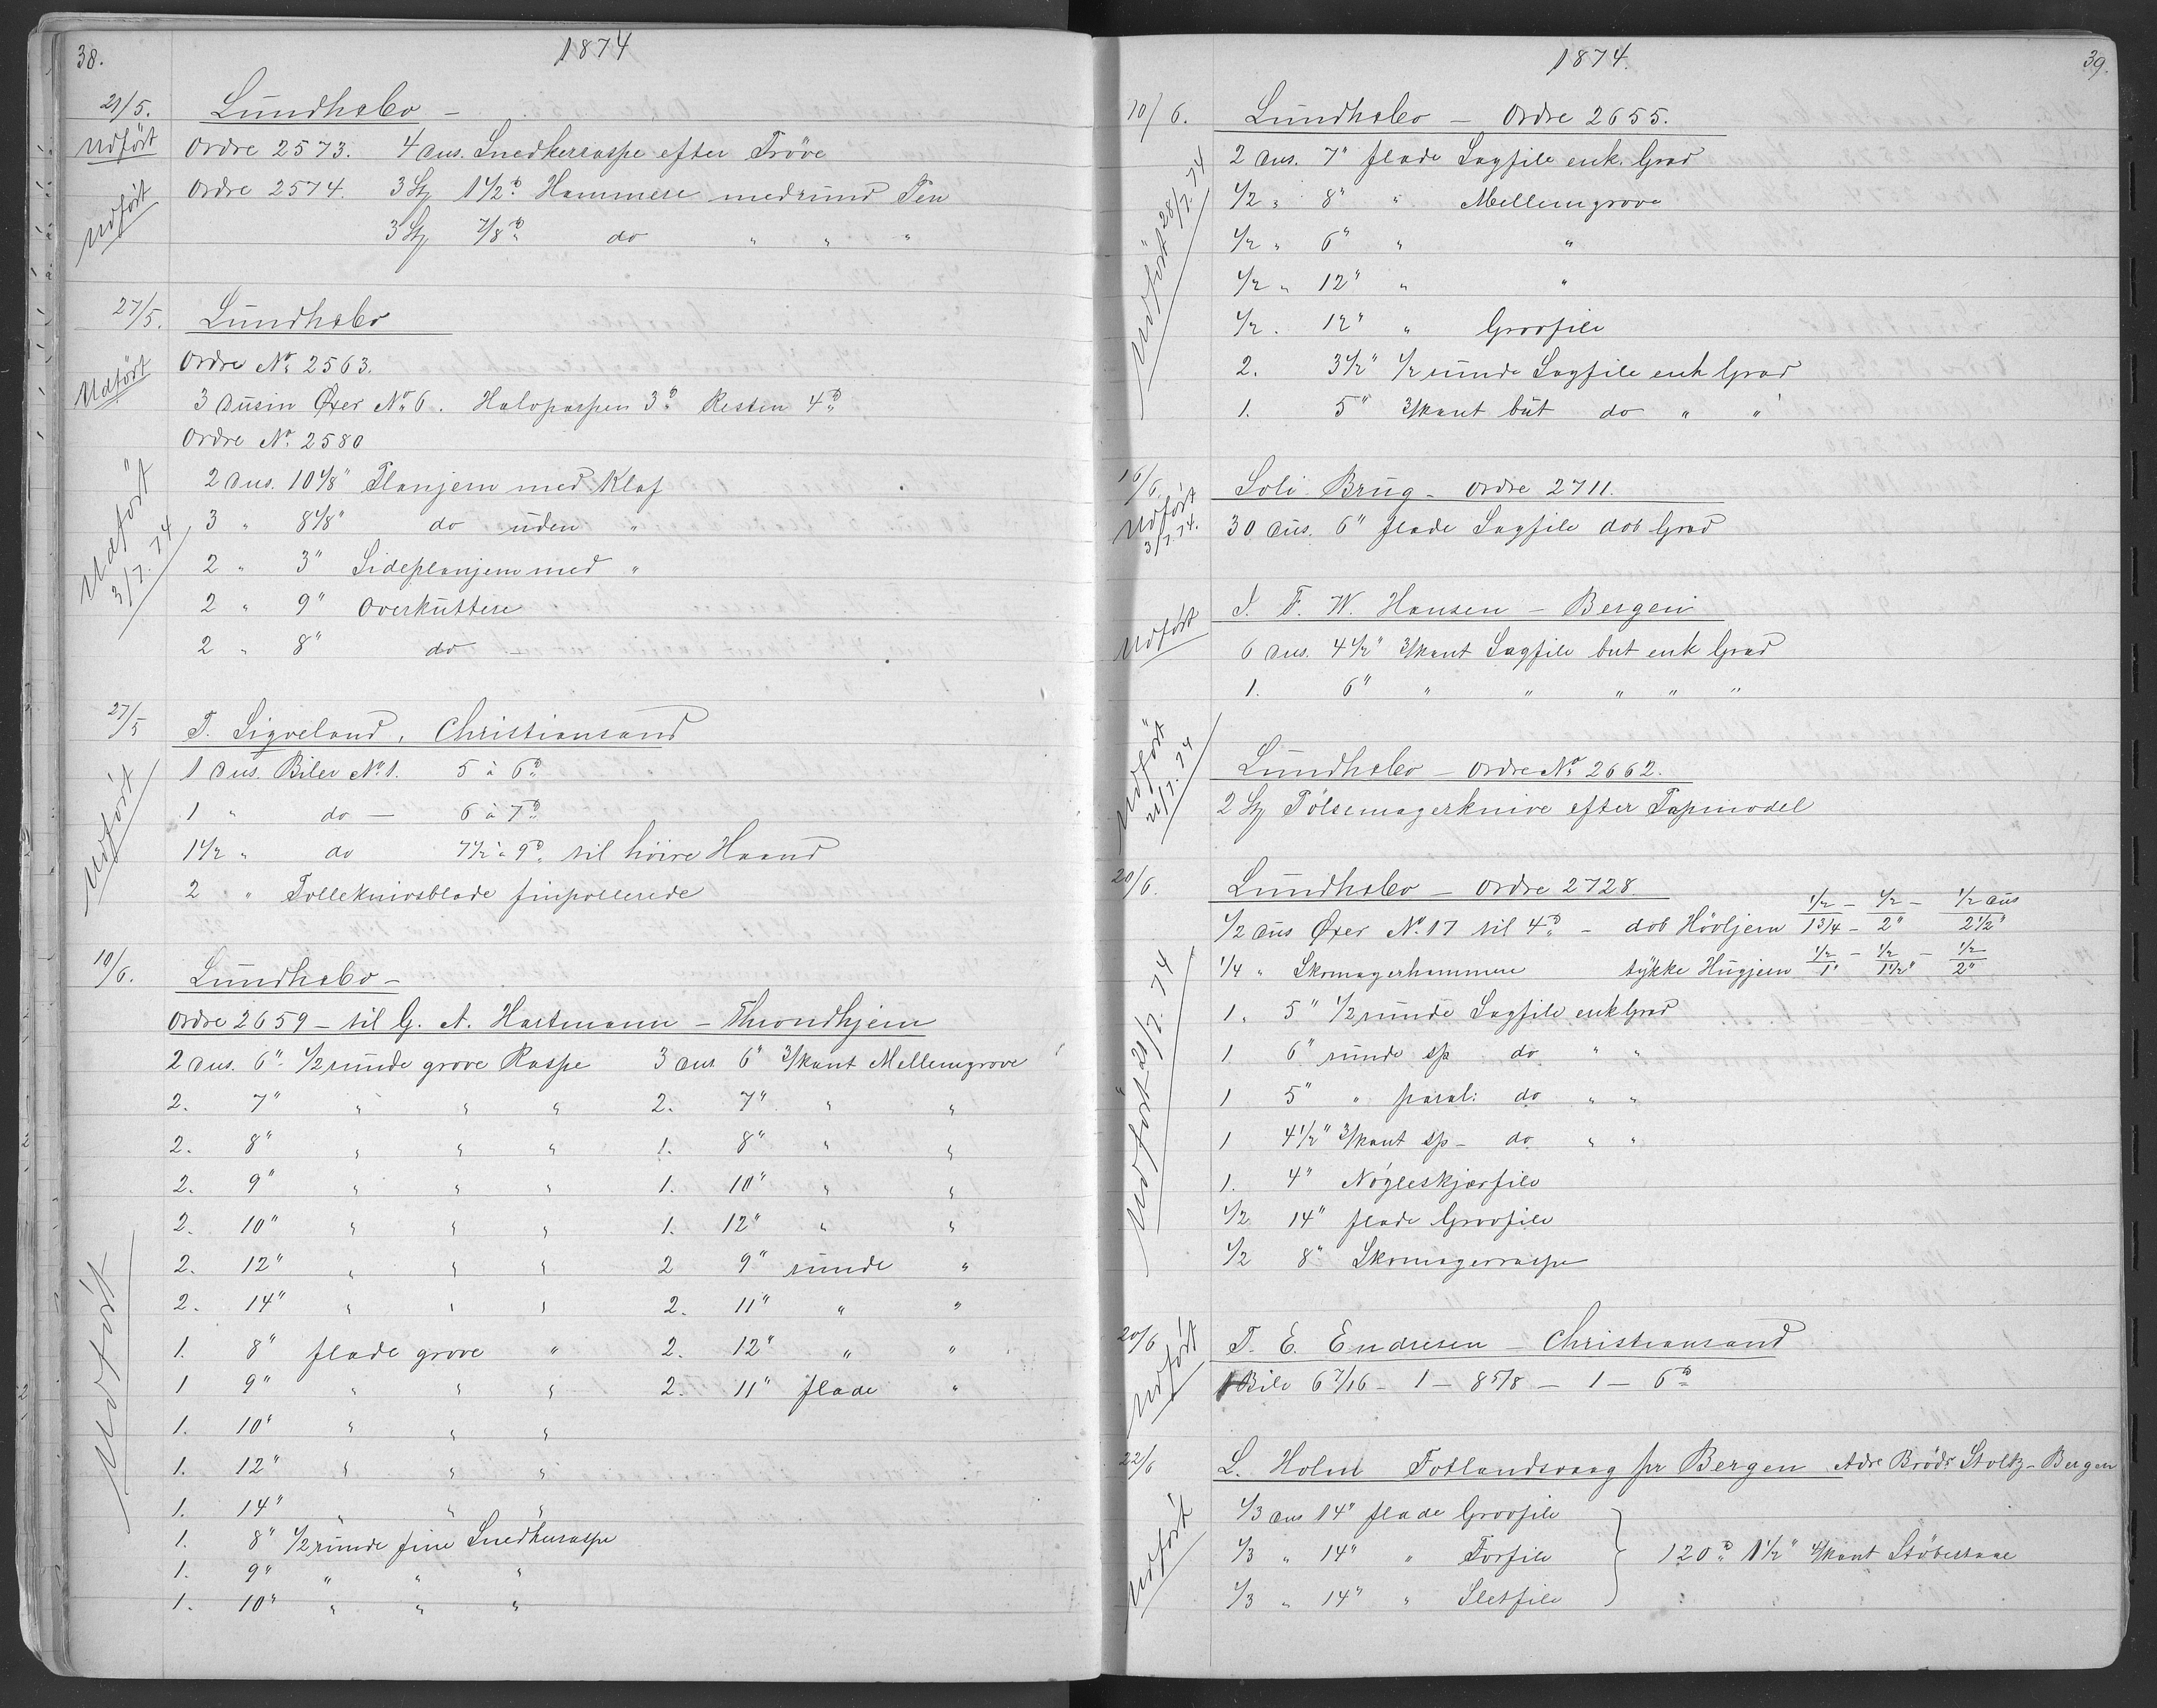 38.
1874
21/5. Lundhsbo –
Udført Ordre 2573. 4 dus. Snedkerraspe efter Prøve
Udført Ordre 2574. 3 Stz 1 1/2 ℔ Hammere med rund Pen
3 Stz 7/8 ℔ do " " "
27/5. Lundhsbo
Udført Ordre No. 2563.
3 dusin Øxer No. 6. Halvparten 3 ℔ Resten 4 ℔
Ordre No. 2580
Udført 3/7. 74
2 dus. 10 1/8" Planjern med Klaf
3 " 8 1/8" do uden "
2 " 3" Sideplanjern med "
2 " 9" Overkuttere
2 " 8" do –
27/5 T. Sigveland, Christiansand
Udført
1 dus. Biler No. 1. 5 à 6 ℔
1 " do – 6 à 7 ℔
1 1/2 " do 7 1/2 à 9 ℔ til høire Haand
2 " Tolleknivsblade finpollerede
10/6. Lundhsbo –
Ordre 2659 – til G. A. Hartmann – Throndhjem
Udført
2 dus. 6" 1/2 runde grove Raspe 3 dus 6" 3/kant Mellemgrove
2. 7" " " " 2. 7" " "
2. 8" " " " 1. 8" " "
2. 9" " " " 1. 10" " "
2. 10" " " " 1. 12" " "
2. 12" " " " 2 9" runde "
2. 14" " " " 2. 11" " "
1. 8" flade grove " 2. 12" " "
1 9" " " " 2. 11" flade "
1. 10" " " "
1. 12" " " "
1. 14" " " "
1. 8" 1/2 runde fine Snedkeraspe
1. 9" " " "
1. 10" " " "
1874.
39.
10/6. Lundhsbo – Ordre 2655.
Udført 28/7. 74
2 dus. 7" flade Sagfile enk. Grad
1/2 " 8" " Mellemgrove
1/2 " 6" " "
1/2 " 12" " "
1/2 . 12" " Grovfile
2. 3 1/2" 1/2 runde Sagfile enk Grad
1. 5" 3/kant but do " "
16/6. Soli Brug – Ordre 2711.
Udført 3/7. 74.
30 dus. 6" flade Sagfile dob Grad
J. F. W. Hansen – Bergen
Udført
6 dus. 4 1/2" 3/kant Sagfile but enk Grad
1. 6" " " " " "
Udført 21/7. 74
Lundhsbo – Ordre No. 2662.
2 Stz Pølsemagerknive efter Papmodel
20/6. Lundhsbo – Ordre 2728.
1/2 – 1/2 – 1/2 dus
1/2 dus Øxer No. 17 til 4 ℔ – dob Høvljern 1 3/4 – 2" 2 1/2"
1/2 – 1/2 – 1/2
1/4 " Skomagerhammere tykke Hugjern 1" 1 1/2" 2"
Udført 21/7. 74
1. 5" 1/2 runde Sagfile enk Grad
1. 6" runde sp do " "
1 5" " paral: do " "
1 4 1/2" 3/kant sp – do " "
1. 4" Nøgleskjærfile
1/2 14" flade Grovfile
1/2 8" Skomagerraspe
20/6 T. E. Endresen – Christiansand
Udført
1 Bile 6 7/16 – 1 – 8 5/8 – 1 – 6 ℔
22/6 L. Holm Fotlandsvaag pr Bergen Adr Brødr Stoltz – Bergen
Udført
1/3 dus 14" flade Grovfile
1/3 " 14" " Forfile } 120 ℔ 1 1/2" 4/kant Støbestaal
1/3 " 14" " Sletfile